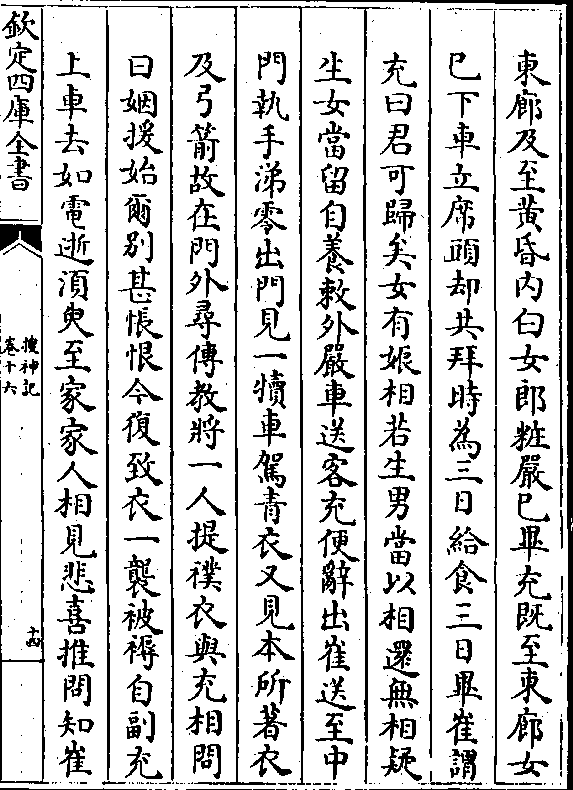 東廊及至黄昏内白女郎粧嚴已畢充既至東廊女
已下車立席頭却共拜時為三日給食三日畢崔謂
充曰君可歸矣女有娠相若生男當以相還無相疑
生女當留自養敕外嚴車送客充便辭出崔送至中
門執手涕零出門見一犢車駕青衣又見本所著衣
及弓箭故在門外尋傳教將一人提襆衣與充相問
曰姻援始爾别甚悵恨今復致衣一襲被褥自副充
上車去如電逝須臾至家家人相見悲喜推問知崔
欽定四庫全書
搜神記
卷十六
十四